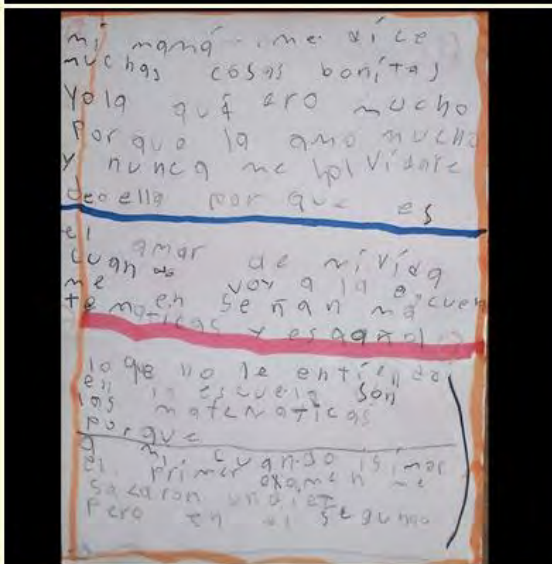 mi mamá me dice
muchas cosas bonitas
Yo la qui ero mucho
Porque la amo mucho
y nunca me lolvidare
deo ella por que es
el amar de mi vida
cuan do voy a la e cuen
me en señan ma
tematicas y esgañol
lo que no le entiendo
en la escuela son
las matematicas
porque
a mi cuando isimos
el primer examen me
sacaron undiez
Pero en el segundo